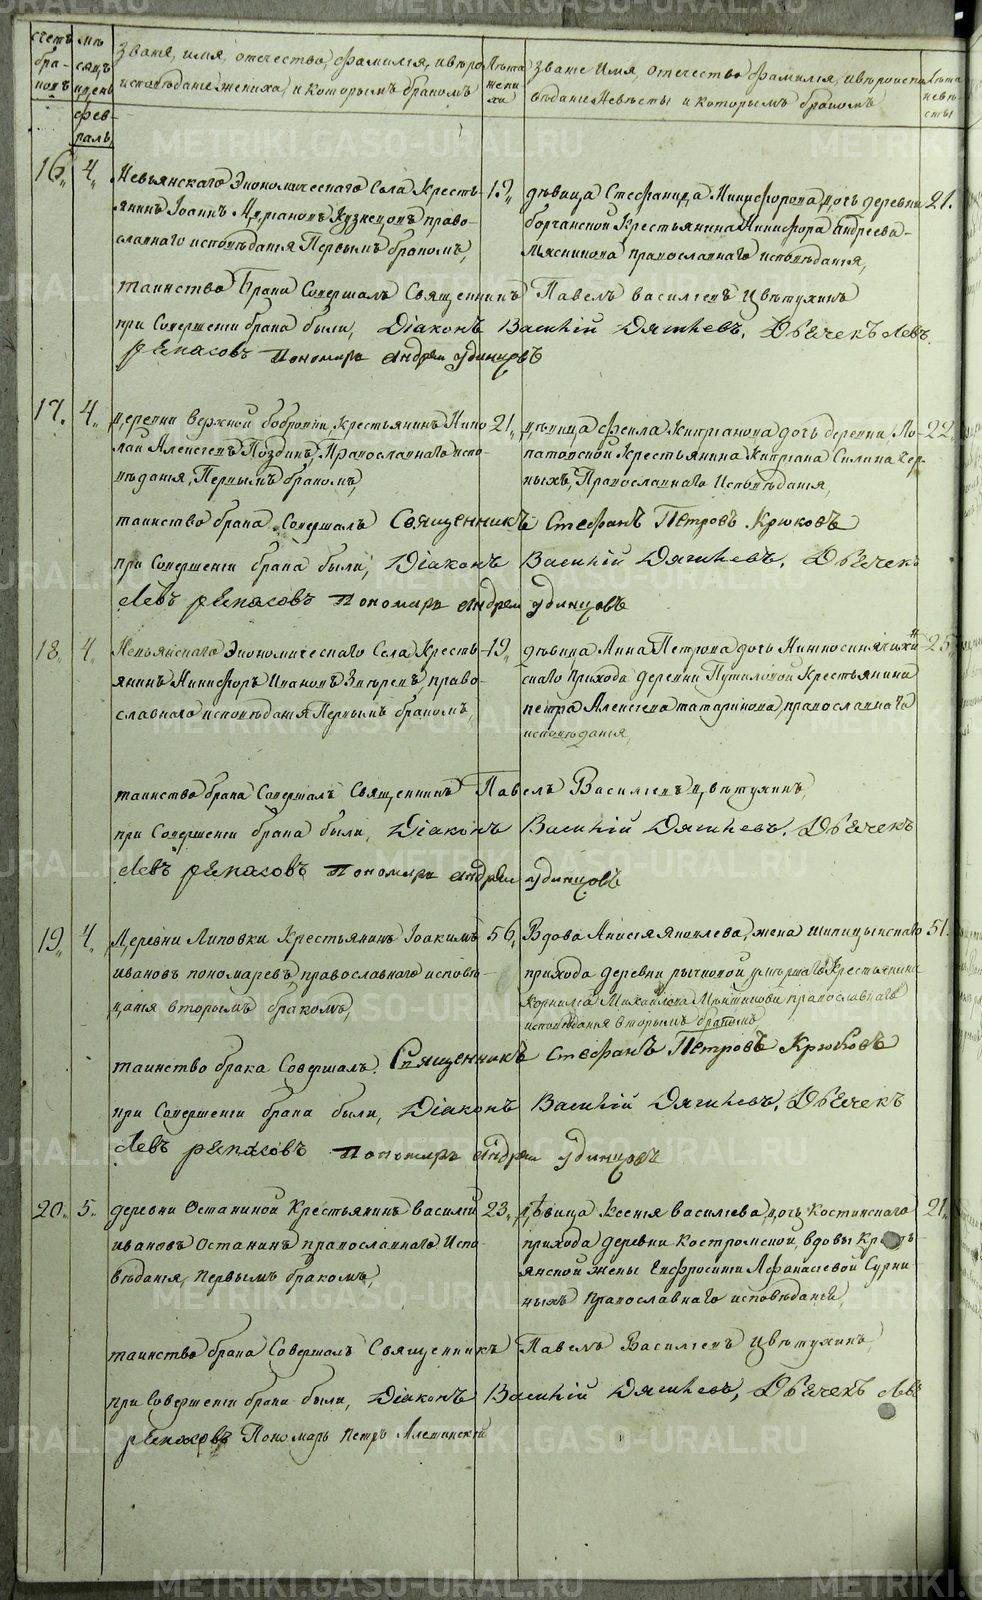 счетъ браковъ
мѣсяцъ и день
февраль
Званіе, имя, отечество, фамилія, и вѣроисповѣданіе жениха, и которымъ бракомъ
Лѣта жениха
Званіе Имя, отечество фамилія, и вѣроисповѣданіе Невѣсты и которымъ бракомъ
Лѣта невѣсты
16. 4. Невьянскаго Экономическаго Села Кресть- 19. дѣвица Стефанида Никифорова дочь деревни 21.
янинъ Іоаннъ Кузнецовъ право- Крестьянина Никифора Андреева
славнаго исповѣданія Первымъ бракомъ, Мясникова православнаго исповѣданія,
таинство Брака Совершалъ Священникъ Павелъ Василіевъ Цвѣтухинъ
при Совершеніи брака были, Діаконъ Василій Дягилевъ. Дьячекъ Левъ
Пономарь Андрей Удинцовъ
17. 4. Деревни Верхней Бобровки Крестьянинъ Нико- 21. дѣвица Фекла Кипріанова дочь деревни Ло- 22.
лай Алексѣевъ Поздинъ, Православнаго испо- патовской Крестьянина Кипріана Силина Чер-
вѣданія, Первымъ бракомъ, ныхъ, Православнаго Исповѣданія,
таинство брака Совершалъ Священникъ Стефанъ Петровъ Крюковъ
при Совершеніи брака были, Діаконъ Василій Дягилевъ. Дьячекъ
Левъ Пономарь Андрей Удинцовъ
18. 4. Невьянскаго Экономическаго Села Кресть- 19. дѣвица Анна Петрова дочь Нижносинячихин- 25
янинъ Никифоръ Ивановъ право- скаго прихода деревни Путиловой Крестьянина
славнаго исповѣданія Первымъ бракомъ, петра Алексѣева татаринова, православнаго
исповѣданія,
таинство брака Совершалъ Священникъ Павелъ Василіевъ Цвѣтухинъ,
при Совершеніи брака были, Діаконъ Василій Дягилевъ. Дьячекъ
Левъ Пономарь Андрей Удинцовъ
19. 4. Деревни Липовки Крестьянинъ Іоакимъ 56. Вдова Анисія Яковлева, жена Шипицынскаго 51.
ивановъ пономаревъ православнаго исповѣ- прихода деревни умершаго Крестьянина
данія вторымъ бракомъ, Корнилія Михайлова православнаго
исповѣданія вторымъ бракомъ
таинство брака Совершалъ Священникъ Стефанъ Петровъ Крюковъ
при Совершеніи брака были, Діаконъ Василій Дягилевъ. Дьячекъ
Левъ Пономарь Андрей Удинцовъ
20. 5. деревни Останиной Крестьянинъ Василій 23. Дѣвица Ксенія василіева, дочь Костинскаго 21.
ивановъ Останинъ православнаго Испо- прихода деревни Костромской, вдовы Кресть-
вѣданія, первымъ бракомъ, янской жены Евфросиніи Афанасіевой Сурни-
ныхъ Православнаго исповѣданія
таинство брака Совершалъ Священникъ Павелъ Василіевъ Цвѣтухинъ,
при Совершеніи брака были, Діаконъ Василій Дягилевъ, Дьячекъ Левъ
Пономарь Петръ
METRIKI.GASO-URAL.RU